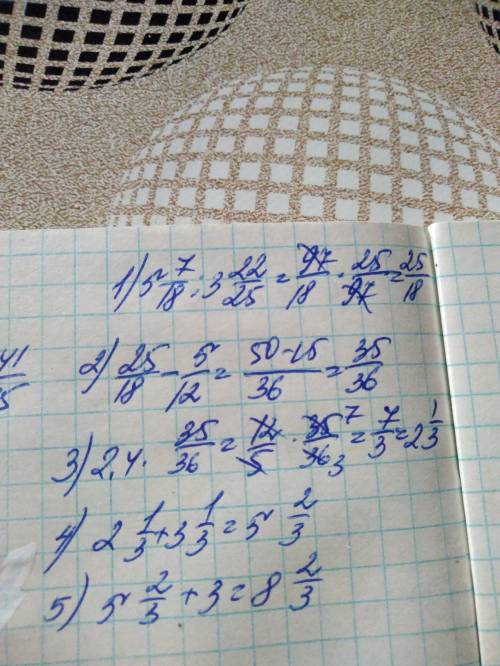 1) 5 7/18 : 3 22/25 = 97/18 · 25/97 = 25/18
41/5
2) 25/18 - 5/12 = 50-15/36 = 35/36
3) 2,4 · 35/36 = 12/5 · 35 7/36 3 = 7/3 = 2 1/3
4) 2 1/3 + 3 1/3 = 5 2/3
5) 5 2/3 + 3 = 8 2/3